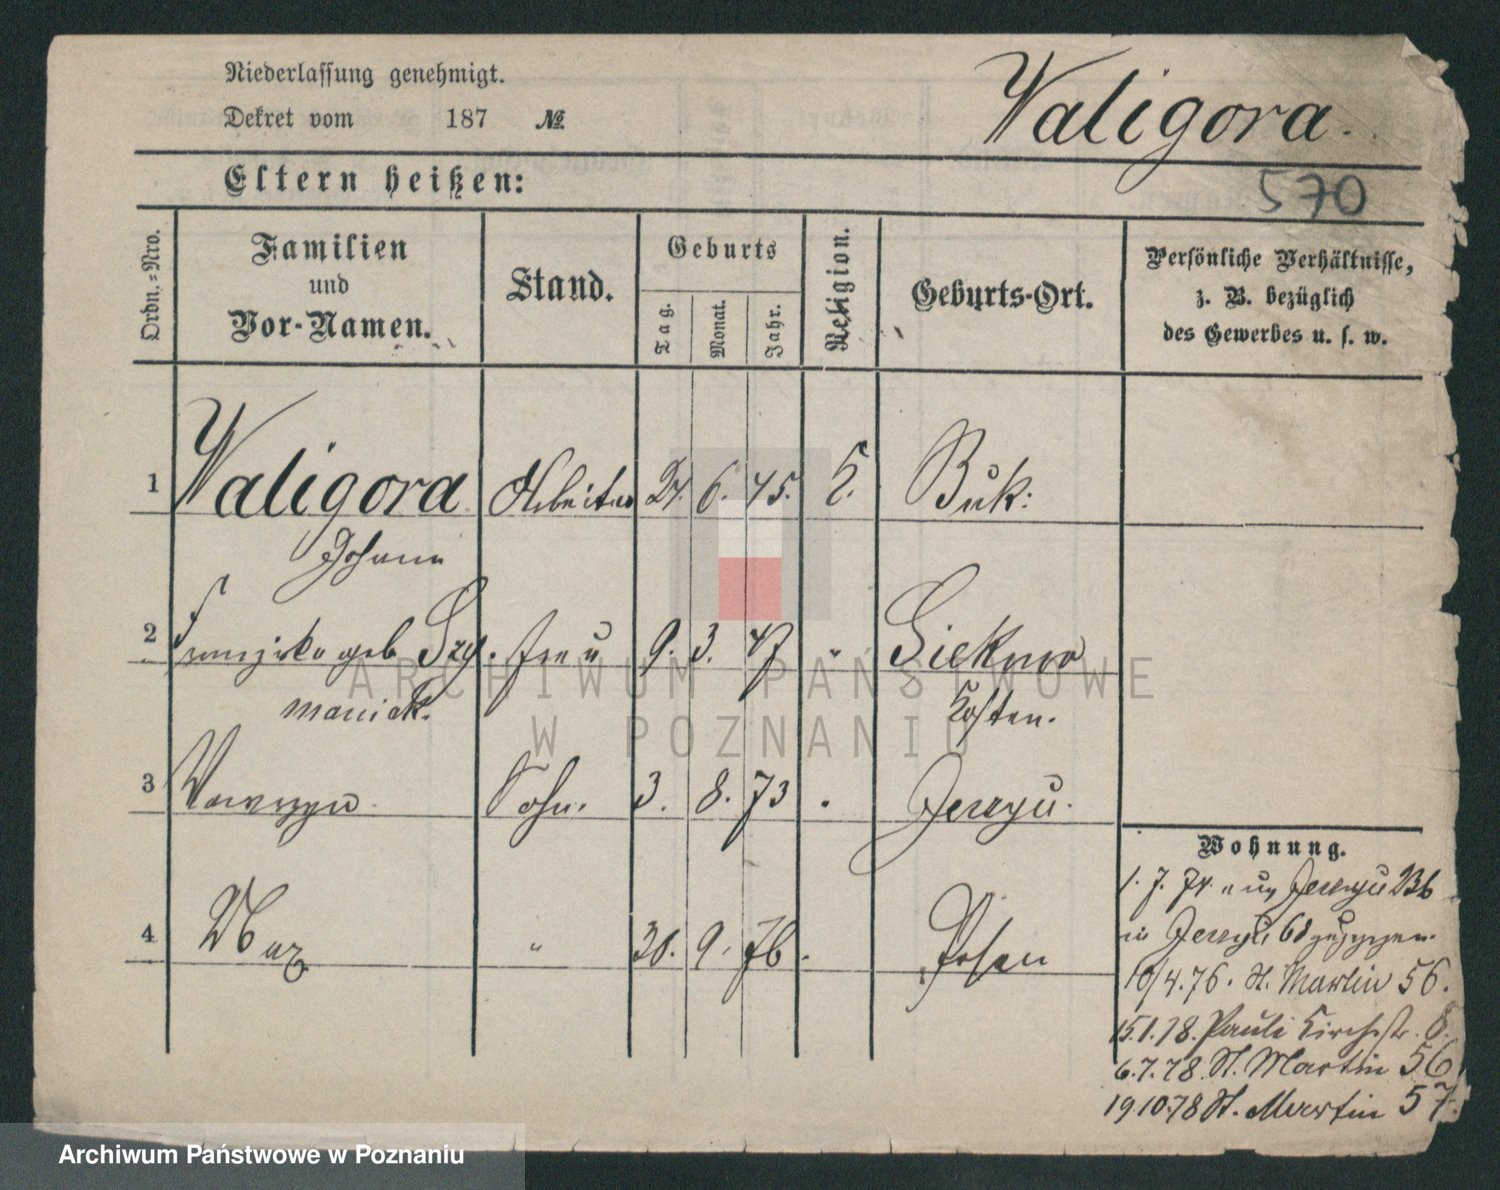 Niederlassung genehmigt.
Dekret vom 187 №
Waligora.
Eltern heißen:
570
Ordn.=Nro.
Familien
und
Vor-Namen.
Stand.
Geburts
Tag.
Monat.
Jahr.
Religion.
Geburts-Ort.
Persönliche Verhältnisse,
z. B. bezüglich
des Gewerbes u. s. w.
1 Waligora Arbeiter 24. 6. 45. Buk.
Johann
2 Franziska geb Szy- frau 9. 3. 47 "
maniak. Kosten.
3 Wawrzyn Sohn. 3. 8. 73 Jerzyu.
4 Max " 30. 9. 76. Posen
Wohnung.
1. 7. 74. Jerzyu
in Jerzyu
10/4.76. St. Martin 56.
15.1.78. Pauli Kirchstr. 8.
6.7.78. St. Martin 56
19 10.78 St. Martin 57.
ARCHIWUM PAŃSTWOWE
W POZNANIU
Archiwum Państwowe w Poznaniu